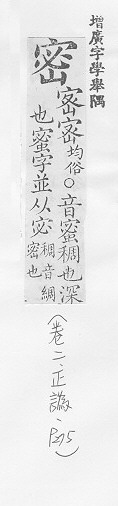 增廣字學舉隅
密
均俗○音蜜稠也深
也蜜字並从宓
稠音綢
密也
(卷二、正譌、P275)